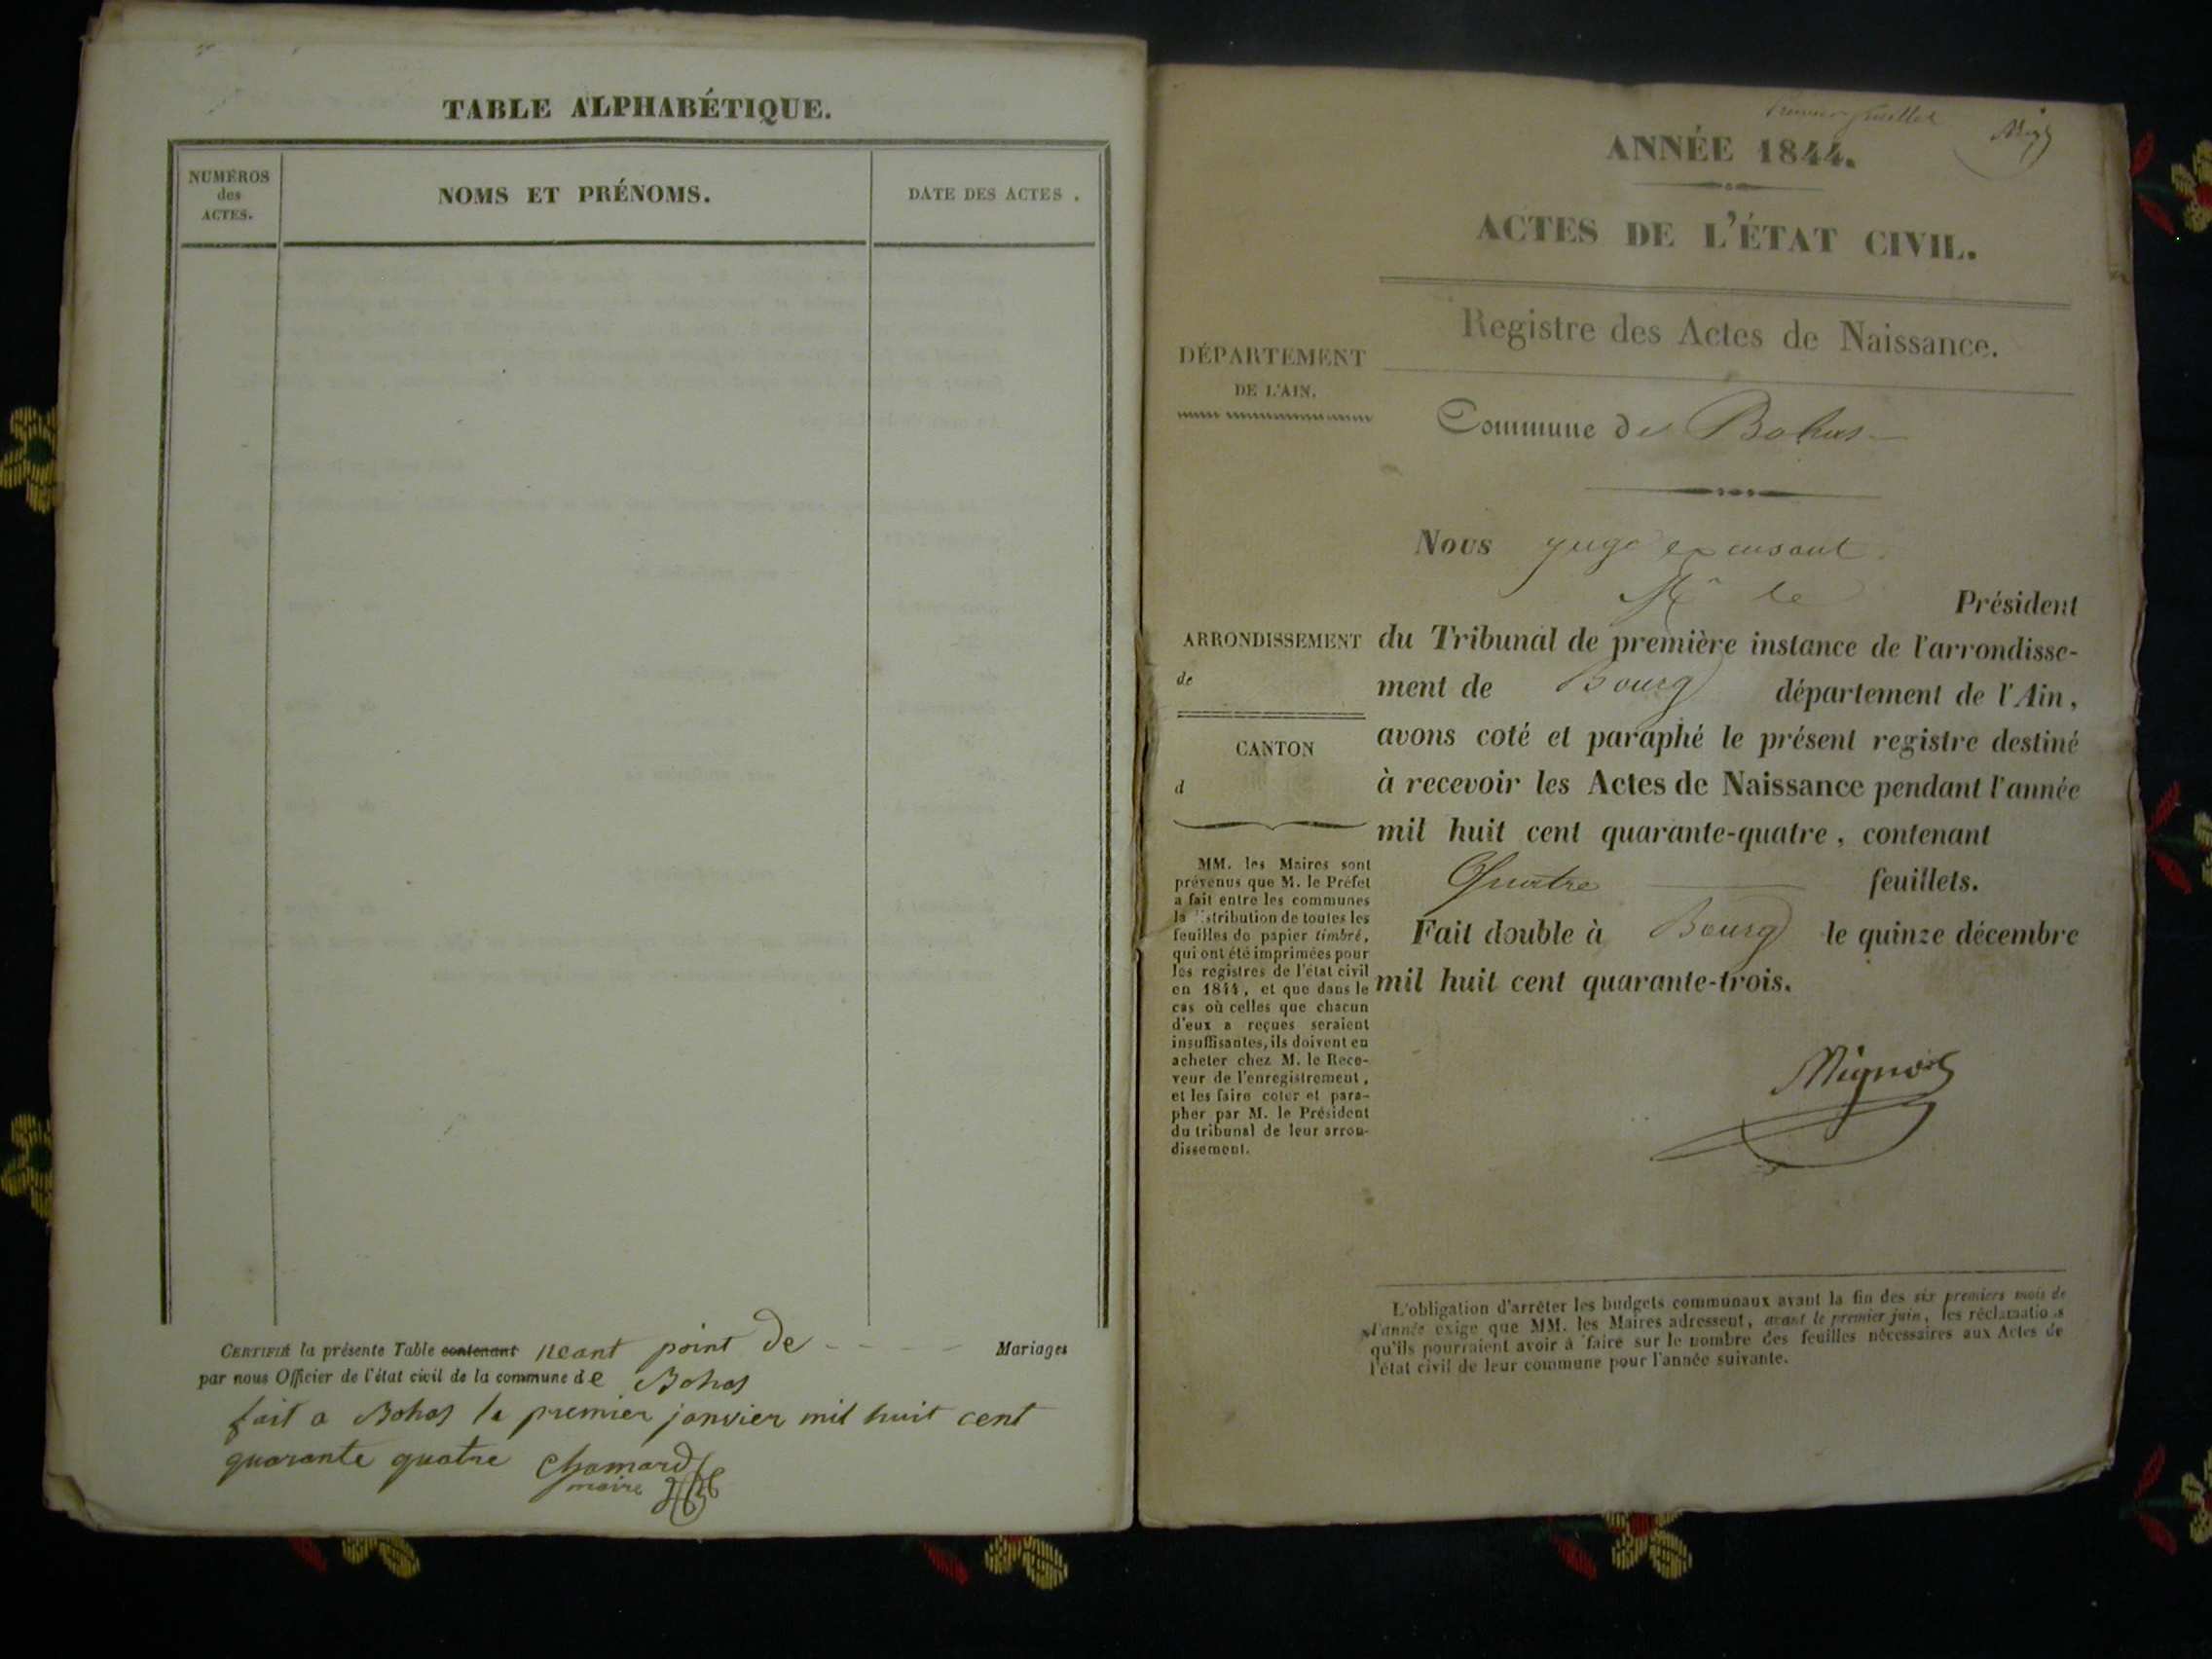 TABLE ALPHABÉTIQUE.
NUMÉROS
des
ACTES.
NOMS ET PRÉNOMS.
DATE DES ACTES .
CERTIFIÉ la présente Table contenant neant point de - - - - Mariages
par nous Officier de l'état civil de la commune de Bohas
fait a Bohas le premier janvier mil huit cent
quarante quatre Chamard
maire
Premier feuillet
ANNÉE 1844.
ACTES DE L'ÉTAT CIVIL.
Registre des Actes de Naissance.
DÉPARTEMENT
DE L'AIN.
Commune de Bohas
Nous juge
Mr le Président
ARRONDISSEMENT
de
CANTON
d
du Tribunal de première instance de l'arrondisse-
ment de Bourg département de l'Ain,
avons coté et paraphé le présent registre destiné
à recevoir les Actes de Naissance pendant l'année
mil huit cent quarante-quatre, contenant
Quatre feuillets.
Fait double à Bourg le quinze décembre
mil huit cent quarante-trois.
MM. les Maires sont
prévenus que M. le Préfet
a fait entre les communes
la distribution de toutes les
feuilles de papier timbré,
qui ont été imprimées pour
les registres de l'état civil
en 1844, et que dans le
cas où celles que chacun
d'eux a reçues seraient
insuffisantes, ils doivent en
acheter chez M. le Rece-
veur de l'enregistrement,
et les faire coter et para-
pher par M. le Président
du tribunal de leur arron-
dissement.
L'obligation d'arrêter les budgets communaux avant la fin des six premiers mois de
l'année exige que MM. les Maires adressent, avant le premier juin, les réclamations
qu'ils pourraient avoir à faire sur le nombre des feuilles nécessaires aux Actes de
l'état civil de leur commune pour l'année suivante.